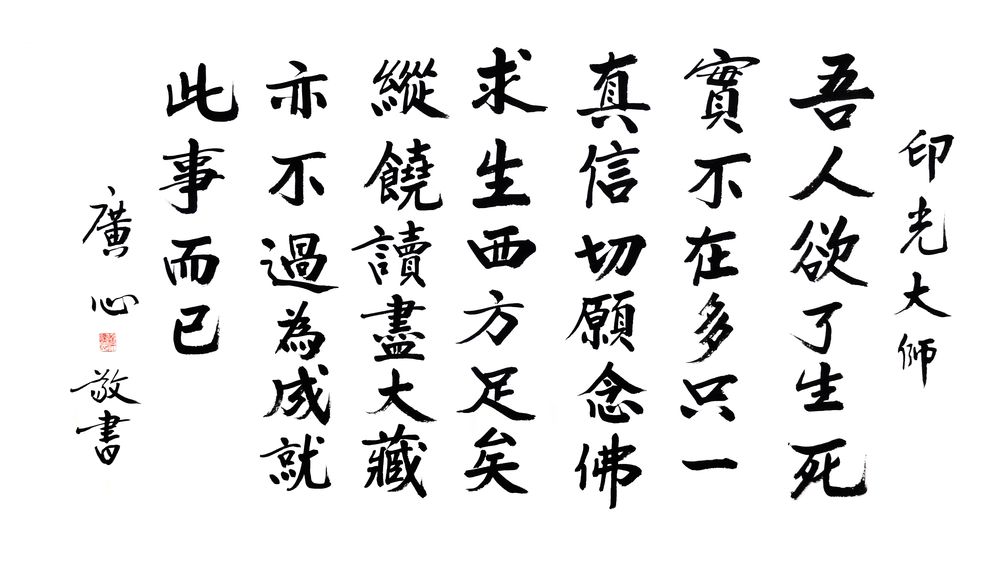 印光大師
吾人欲了生死
實不在多只一
真信切願念佛
求生西方足矣
縱饒讀盡大藏
亦不過為成就
此事而已
廣心
敬書